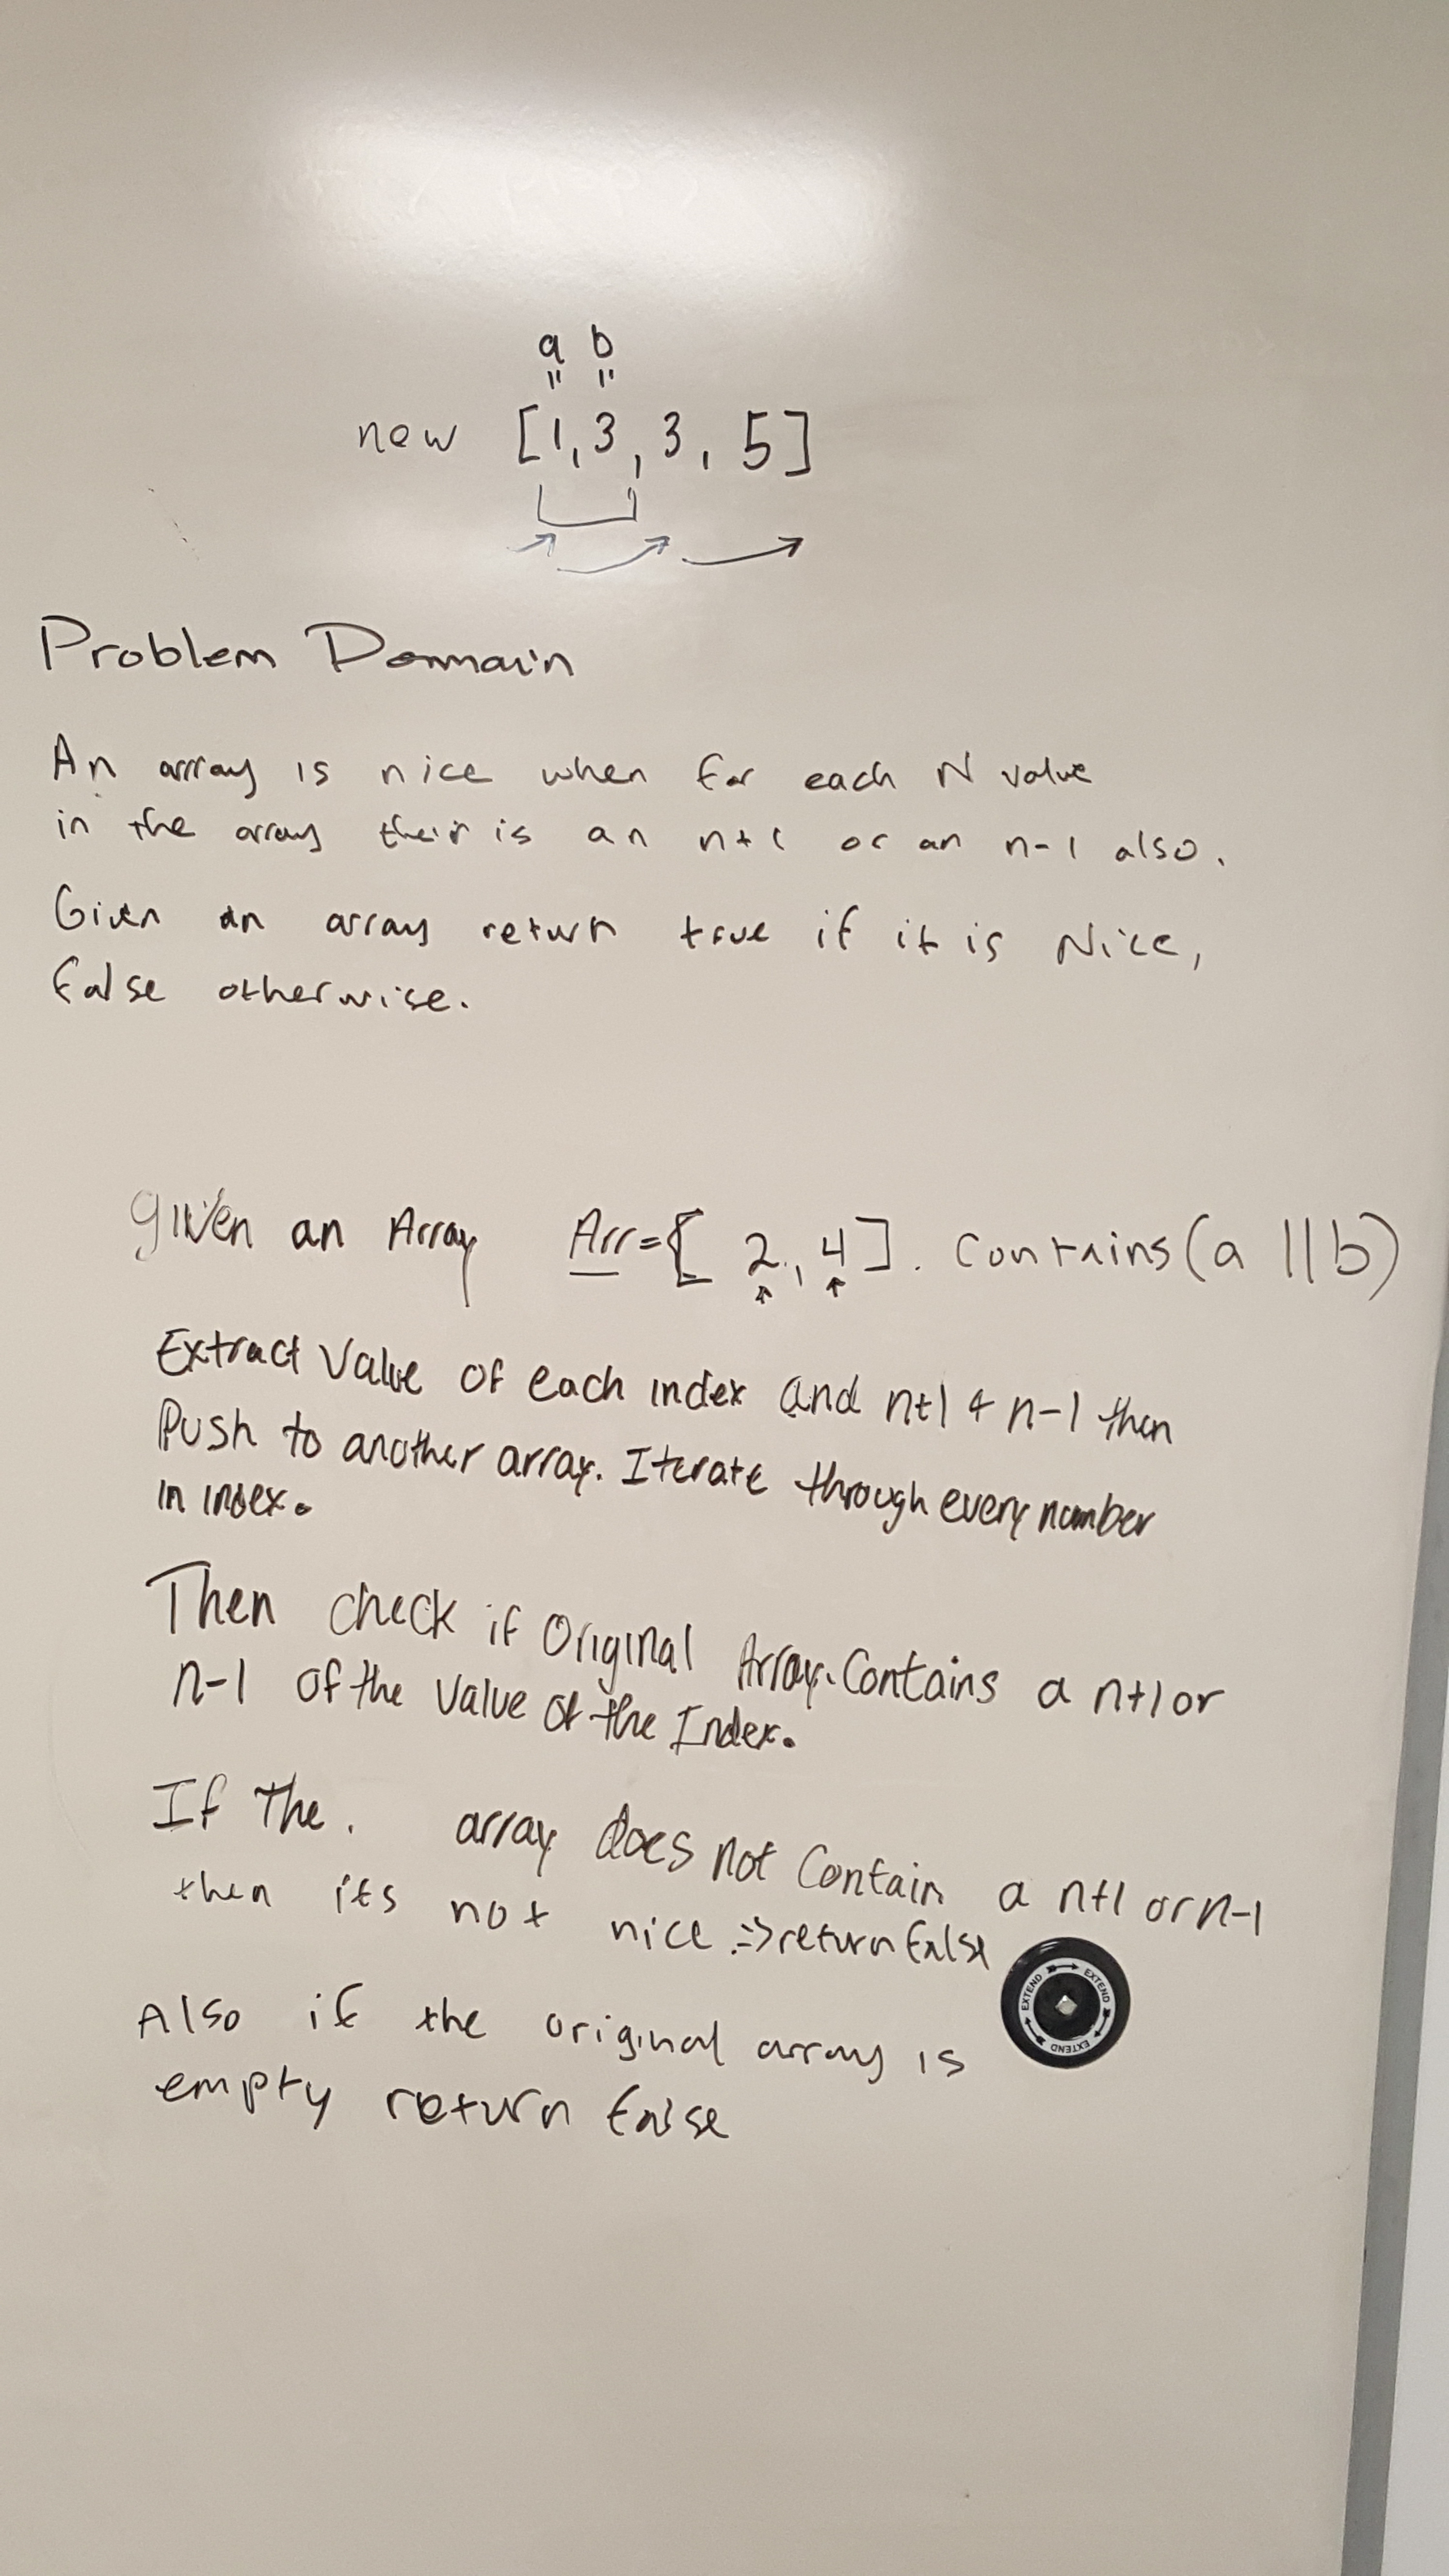 a b
" "
new [1, 3, 3, 5]
Problem Domain
An array is nice when for each N value
in the array their is an n+1 or an n-1 also.
Given an array return true if it is Nice,
false otherwise.
given an Array Arr=[ 2, 4]. Contains(a || b)
Extract Value of each index and n+1 & n-1 then
Push to another array. Iterate through every number
in index.
Then check if Original Array.Contains a n+1 or
n-1 of the value of the Index.
If The. array does not Contain a n+1 or n-1
then its not nice => return false
Also if the original array is
empty return false
EXTEND EXTEND EXTEND